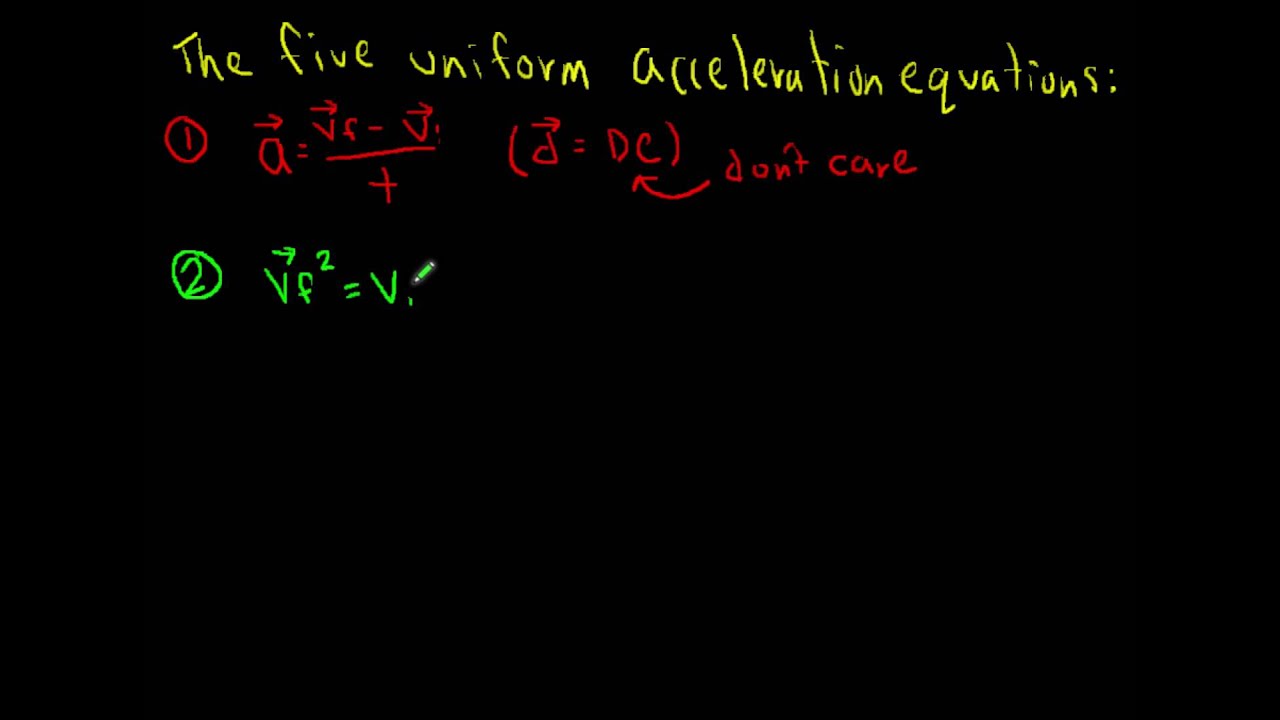 The five uniform acceleration equations:
① a⃗ = (v⃗f - v⃗i)/t (d⃗ = DC) don't care
② v⃗f² = vi